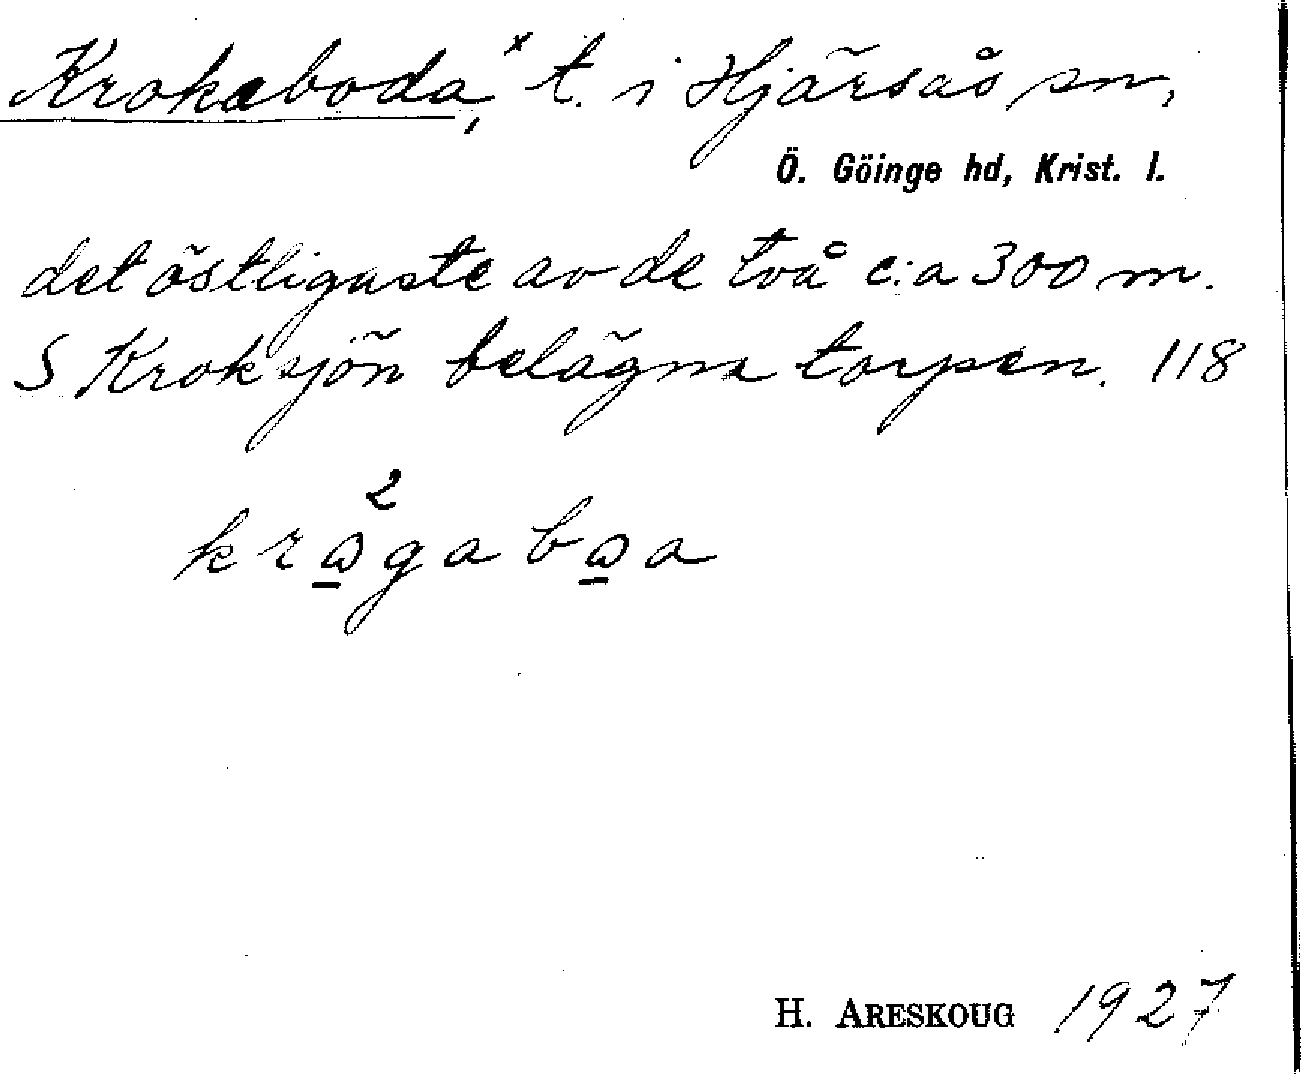 Krokaboda,ˣ t. i Hjärsås sn,
Ö. Göinge hd, Krist. l.
det östligaste av de två c:a 300 m.
S Kroksjön belägna torpen. 118
2
krω̱gabω̱a
H. ARESKOUG 1927